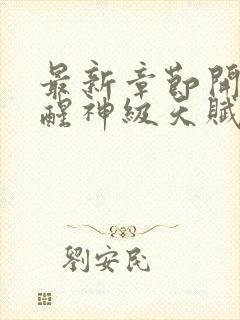 最新章節開
醒神級天賦
劉安民